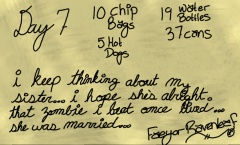 Day 7
10 Chip Bags
5 Hot Dogs
19 Water Bottles
37 cans
i keep thinking about my
sister... i hope she's alright.
that zombie i beat once lived...
she was married...